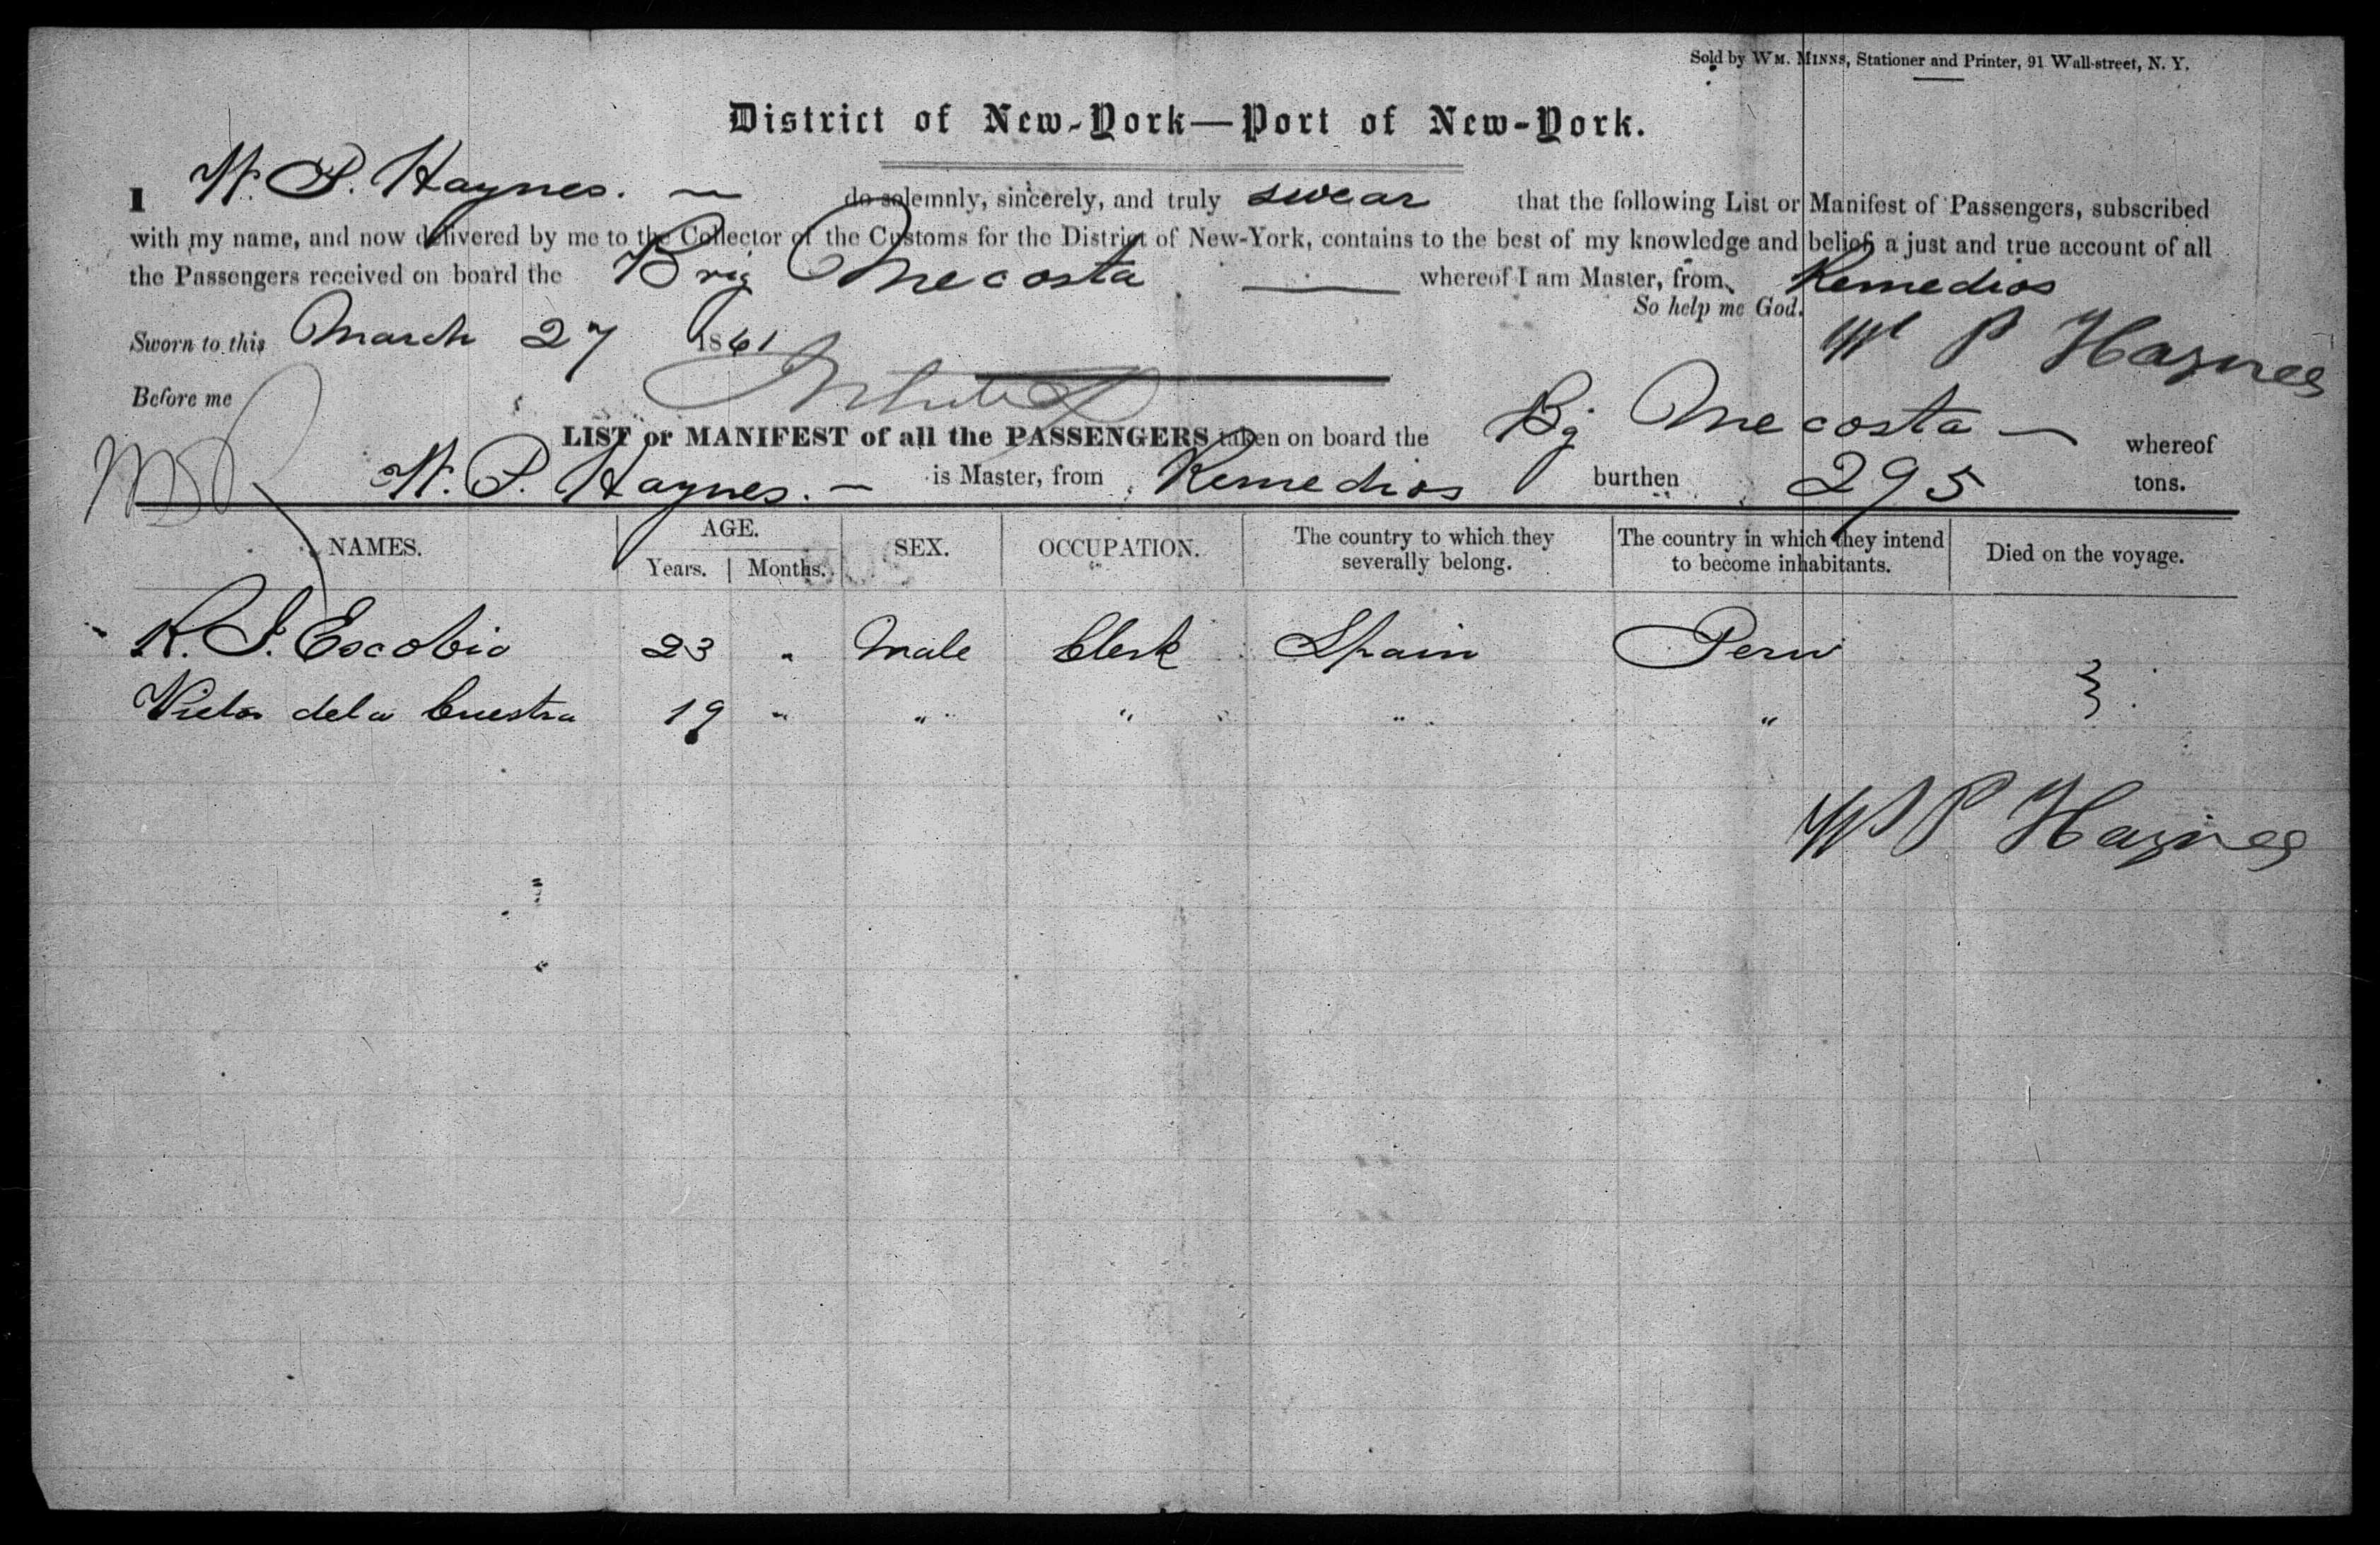 Sold by WM. MINNS, Stationer and Printer, 91 Wall-street, N. Y.
District of New-York—Port of New-York.
I W. P. Haynes. do solemnly, sincerely, and truly swear that the following List or Manifest of Passengers, subscribed
with my name, and now delivered by me to the Collector of the Customs for the District of New-York, contains to the best of my knowledge and belief, a just and true account of all
the Passengers received on board the Brig Mecosta whereof I am Master, from Remedios
So help me God.
Sworn to this March 27 1861
W P Haynes
Before me
LIST or MANIFEST of all the PASSENGERS taken on board the Bg Mecosta — whereof
W. P. Haynes. — is Master, from Remedios burthen 295 tons.
NAMES. AGE. SEX. OCCUPATION. The country to which they severally belong. The country in which they intend to become inhabitants. Died on the voyage.
Years. Months.
R. J. Escobio 23 " Male Clerk Spain Peru
Victor de la Cuestra 19 " " " " "
W P Haynes